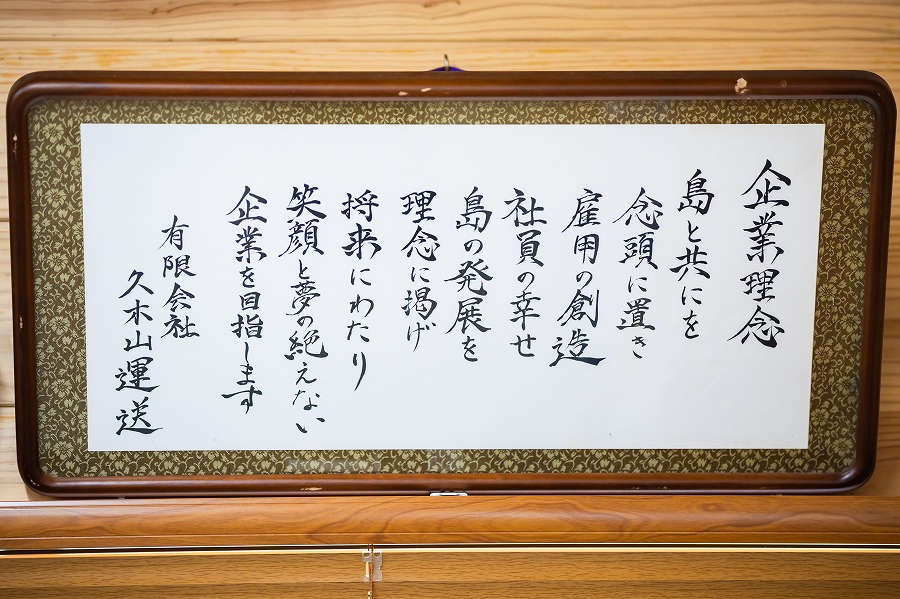 企業理念
島と共にを
念頭に置き
雇用の創造
社員の幸せ
島の発展を
理念に掲げ
将来にわたり
笑顔と夢の絶えない
企業を目指します
有限会社
久木山運送